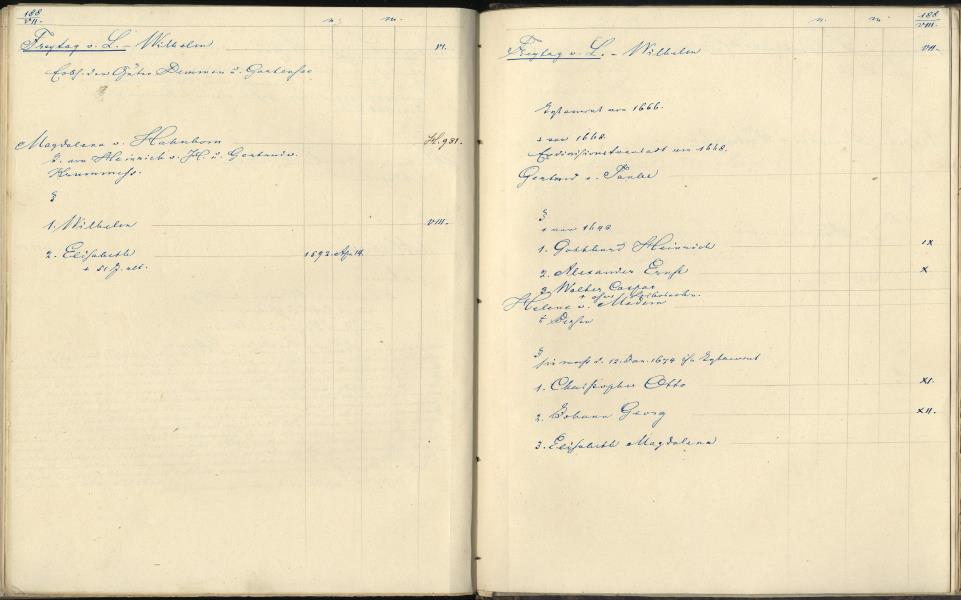 188
VII.
n.
m.
Freytag v. L. - Wilhelm VI.
Erbh. der Güter Demmen u.
Magdalena v. Hahnbom H. 981.
T. von Heinrich v. H. u. Gertrud v.
Krummess.
1. Wilhelm VIII.
2. Elisabeth 1592. Apr. 14.
+ 51 J. alt.
188
VIII.
n.
m.
Freytag v. L. - Wilhelm VII.
Testament von 1666.
+ vor 1668.
von 1668.
Gertrud v. Taube
+ vor 1648
1. Gotthard Heinrich IX
2. Alexander Ernst X
3. Walter Caspar
+ ohne Leibeserben.
Helena v. Medem
1. Christopher Otto XI.
2. Johann Georg XII.
3. Elisabeth Magdalena